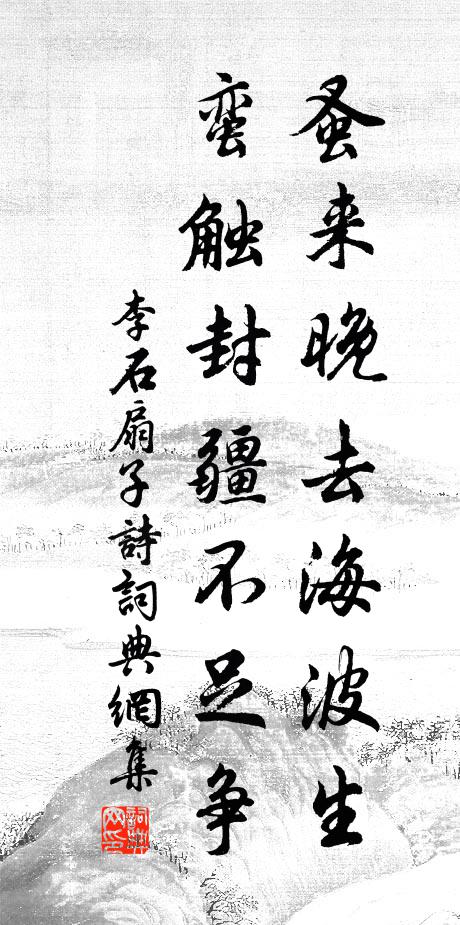 蚤来晚去海波生
蛮触封疆不足争
李石扇子詩詞典網集